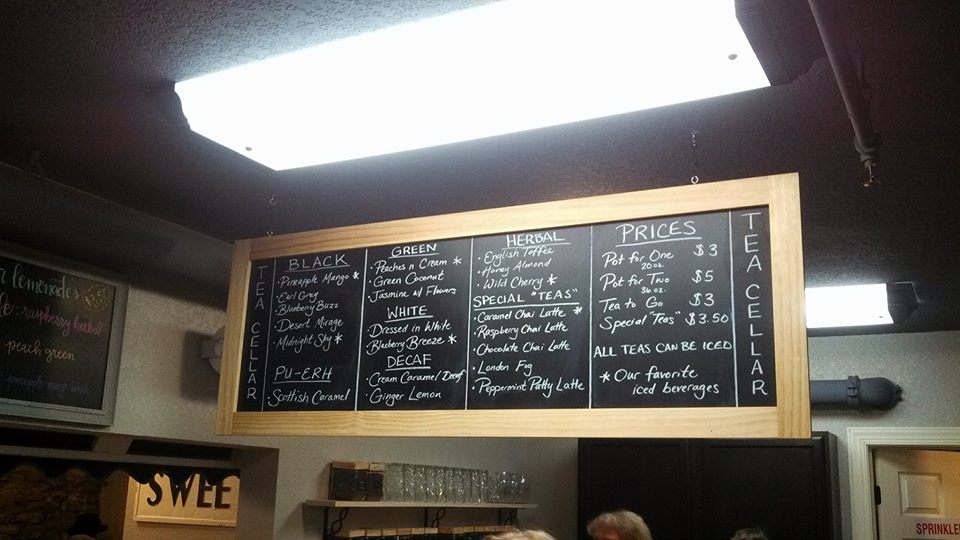 lemonades
raspberry herbal
peach green
TEA CELLAR
BLACK
· Pineapple Mango *
· Earl Grey
· Blueberry Buzz
· Desert Mirage
· Midnight Sky *
PU-ERH
· Scottish Caramel
GREEN
· Peaches n Cream *
· Green Coconut
· Jasmine w/ Flowers
WHITE
· Dressed in White
· Blueberry Breeze *
DECAF
· Cream Caramel Decaf
· Ginger Lemon
HERBAL
· English Toffee
· Honey Almond
· Wild Cherry *
SPECIAL "TEAS"
· Caramel Chai Latte *
· Raspberry Chai Latte
· Chocolate Chai Latte
· London Fog
· Peppermint Patty Latte
PRICES
Pot for One $3
20 oz.
Pot for Two $5
36 oz.
Tea to Go $3
Special "Teas" $3.50
ALL TEAS CAN BE ICED
* Our favorite
iced beverages
TEA CELLAR
SWEE
SPRINKLE